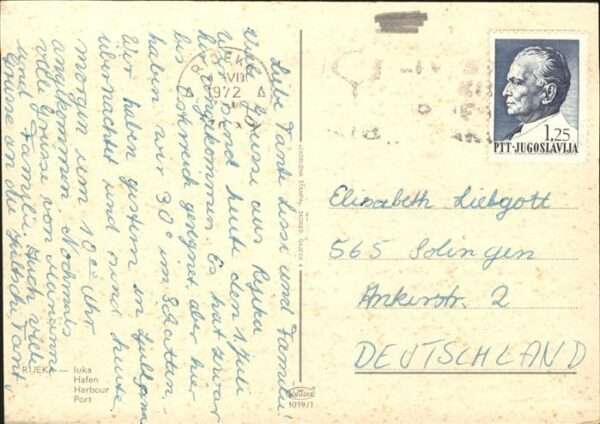 Liebe Tante Lissi und Familie!
Viele Grüsse aus Rijeka
Wir sind heute den 1. Juli
hier angekommen Es hat zwar
bis Österreich geregnet, aber hier
haben wir 30° im Schatten.
Wir haben gestern in Ljubljana
übernachtet und sind heute
morgen um 10 00 Uhr
angekommen. Nochmals
viele Grüsse von
und Familie. Auch viele
Grüsse an die Tante
RIJEKA — luka
Hafen
Harbour
Port
RIJEKA
VII
1972
1,25
PTT-JUGOSLAVIJA
Elisabeth Liebgott
565 Solingen
Ankerstr. 2
DEUTSCHLAND
1019/1